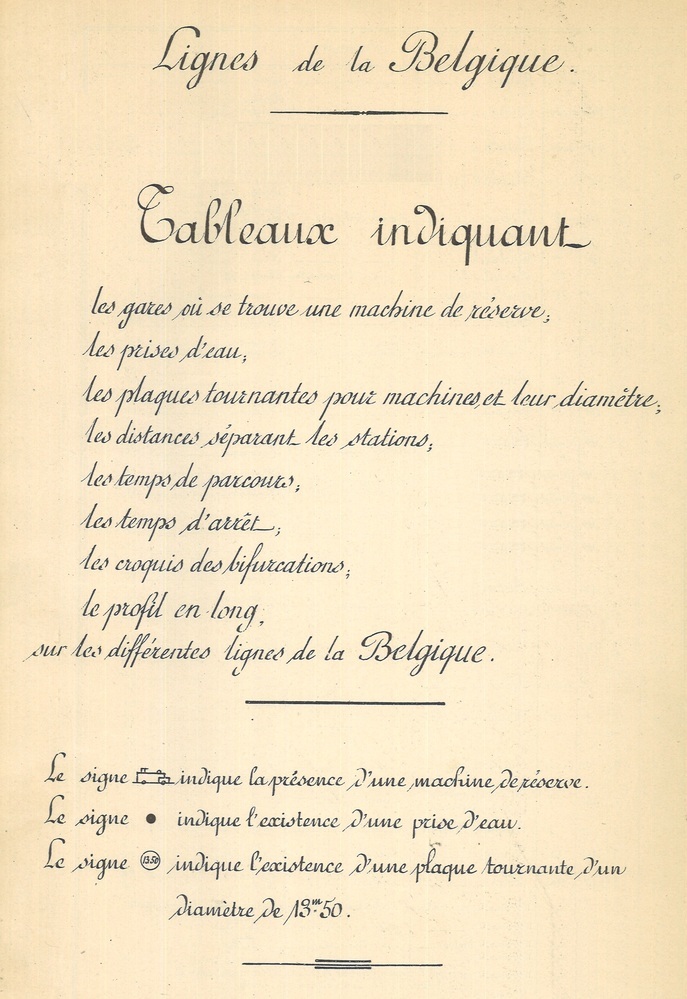 Lignes de la Belgique.
Tableaux indiquant
les gares où se trouve une machine de réserve;
les prises d'eau;
les plaques tournantes pour machines et leur diamêtre;
les distances séparant les stations;
les temps de parcours;
les temps d'arrêt;
les croquis des bifurcations;
le profil en long;
sur les différentes lignes de la Belgique.
Le signe indique la présence d'une machine de réserve.
Le signe ● indique l'existence d'une prise d'eau.
Le signe 13.50 indique l'existence d'une plaque tournante d'un
diamètre de 13m50.